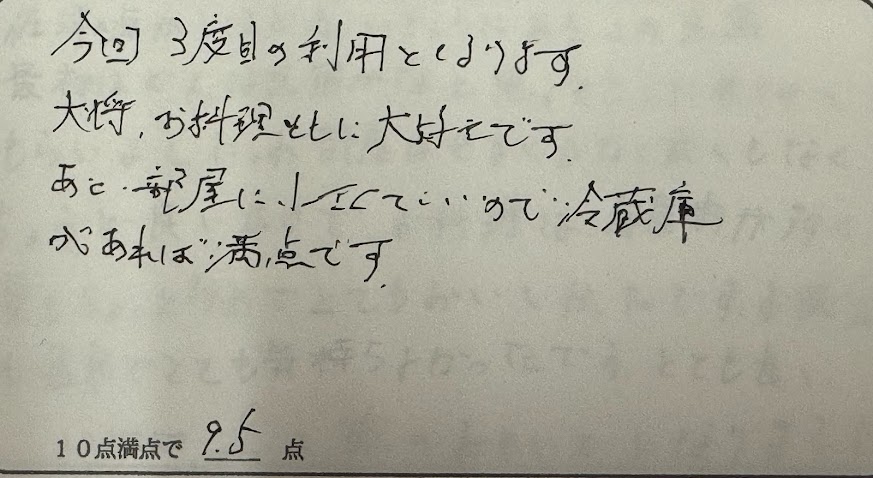 今回 3度目の利用となります.
大将,お料理ともに大好きです.
あと、部屋に小さくていいので冷蔵庫
があれば満点です.
10点満点で 9.5 点